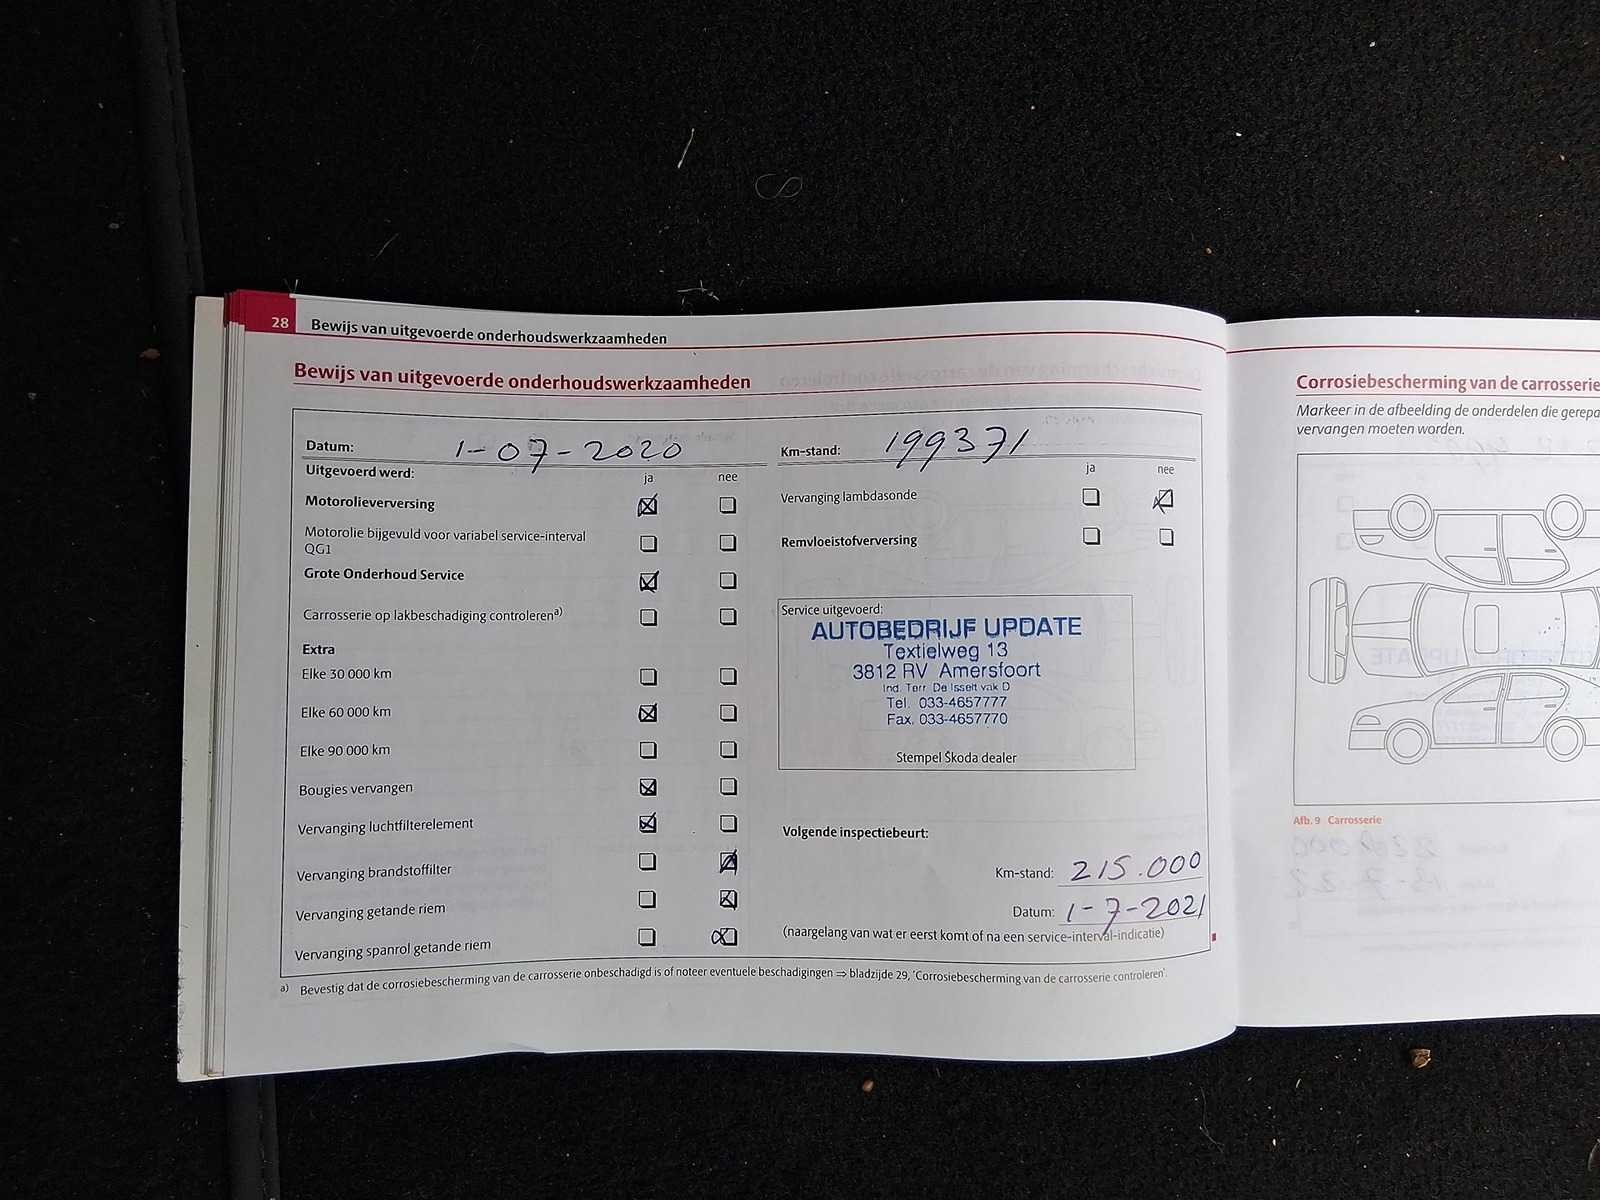 28 Bewijs van uitgevoerde onderhoudswerkzaamheden
Bewijs van uitgevoerde onderhoudswerkzaamheden
Datum: 1-07-2020
Uitgevoerd werd:
ja nee
Motorolieverversing
Motorolie bijgevuld voor variabel service-interval
QG1
Grote Onderhoud Service
Carrosserie op lakbeschadiging controleren a)
Extra
Elke 30 000 km
Elke 60 000 km
Elke 90 000 km
Bougies vervangen
Vervanging luchtfilterelement
Vervanging brandstoffilter
Vervanging getande riem
Vervanging spanrol getande riem
Km-stand: 199371
ja nee
Vervanging lambdasonde
Remvloeistofverversing
Service uitgevoerd:
AUTOBEDRIJF UPDATE
Textielweg 13
3812 RV Amersfoort
Ind. Terr. De Isselt vak D
Tel. 033-4657777
Fax. 033-4657770
Stempel Škoda dealer
Volgende inspectiebeurt:
Km-stand: 215.000
Datum: 1-7-2021
(naargelang van wat er eerst komt of na een service-interval-indicatie)
a) Bevestig dat de corrosiebescherming van de carrosserie onbeschadigd is of noteer eventuele beschadigingen ⇒ bladzijde 29, 'Corrosiebescherming van de carrosserie controleren'.
Corrosiebescherming van de carrosserie
Markeer in de afbeelding de onderdelen die
vervangen moeten worden.
Afb. 9 Carrosserie